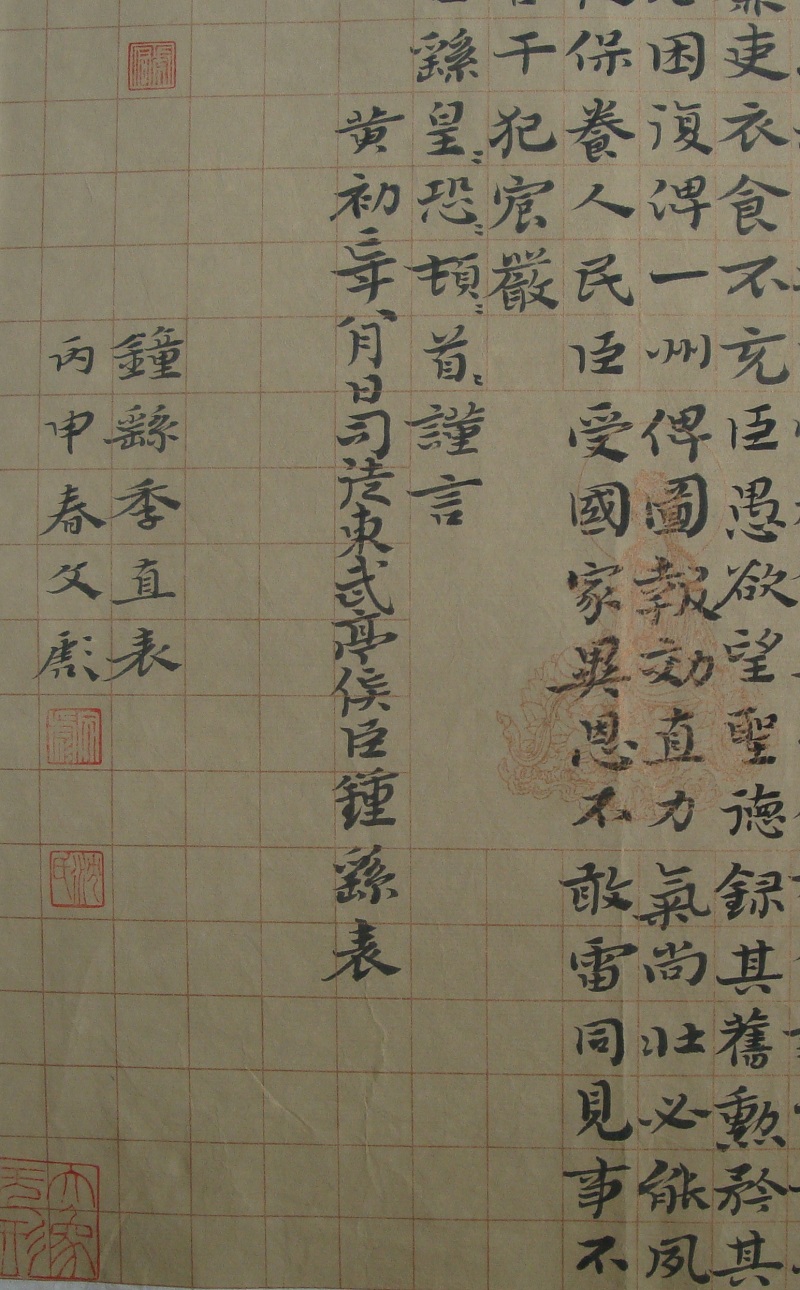 吏衣食不充臣愚欲望聖德録其舊勲矜其
困復俾一州俾圖報効直力氣尚壯必能夙
保養人民臣受國家異恩不敢雷同見事不
干犯宸嚴
繇皇〻恐〻頓〻首〻謹言
黄初二年八月日司徒東武亭侯臣鍾繇表
鐘繇季直表
丙申春文彪
沈氏